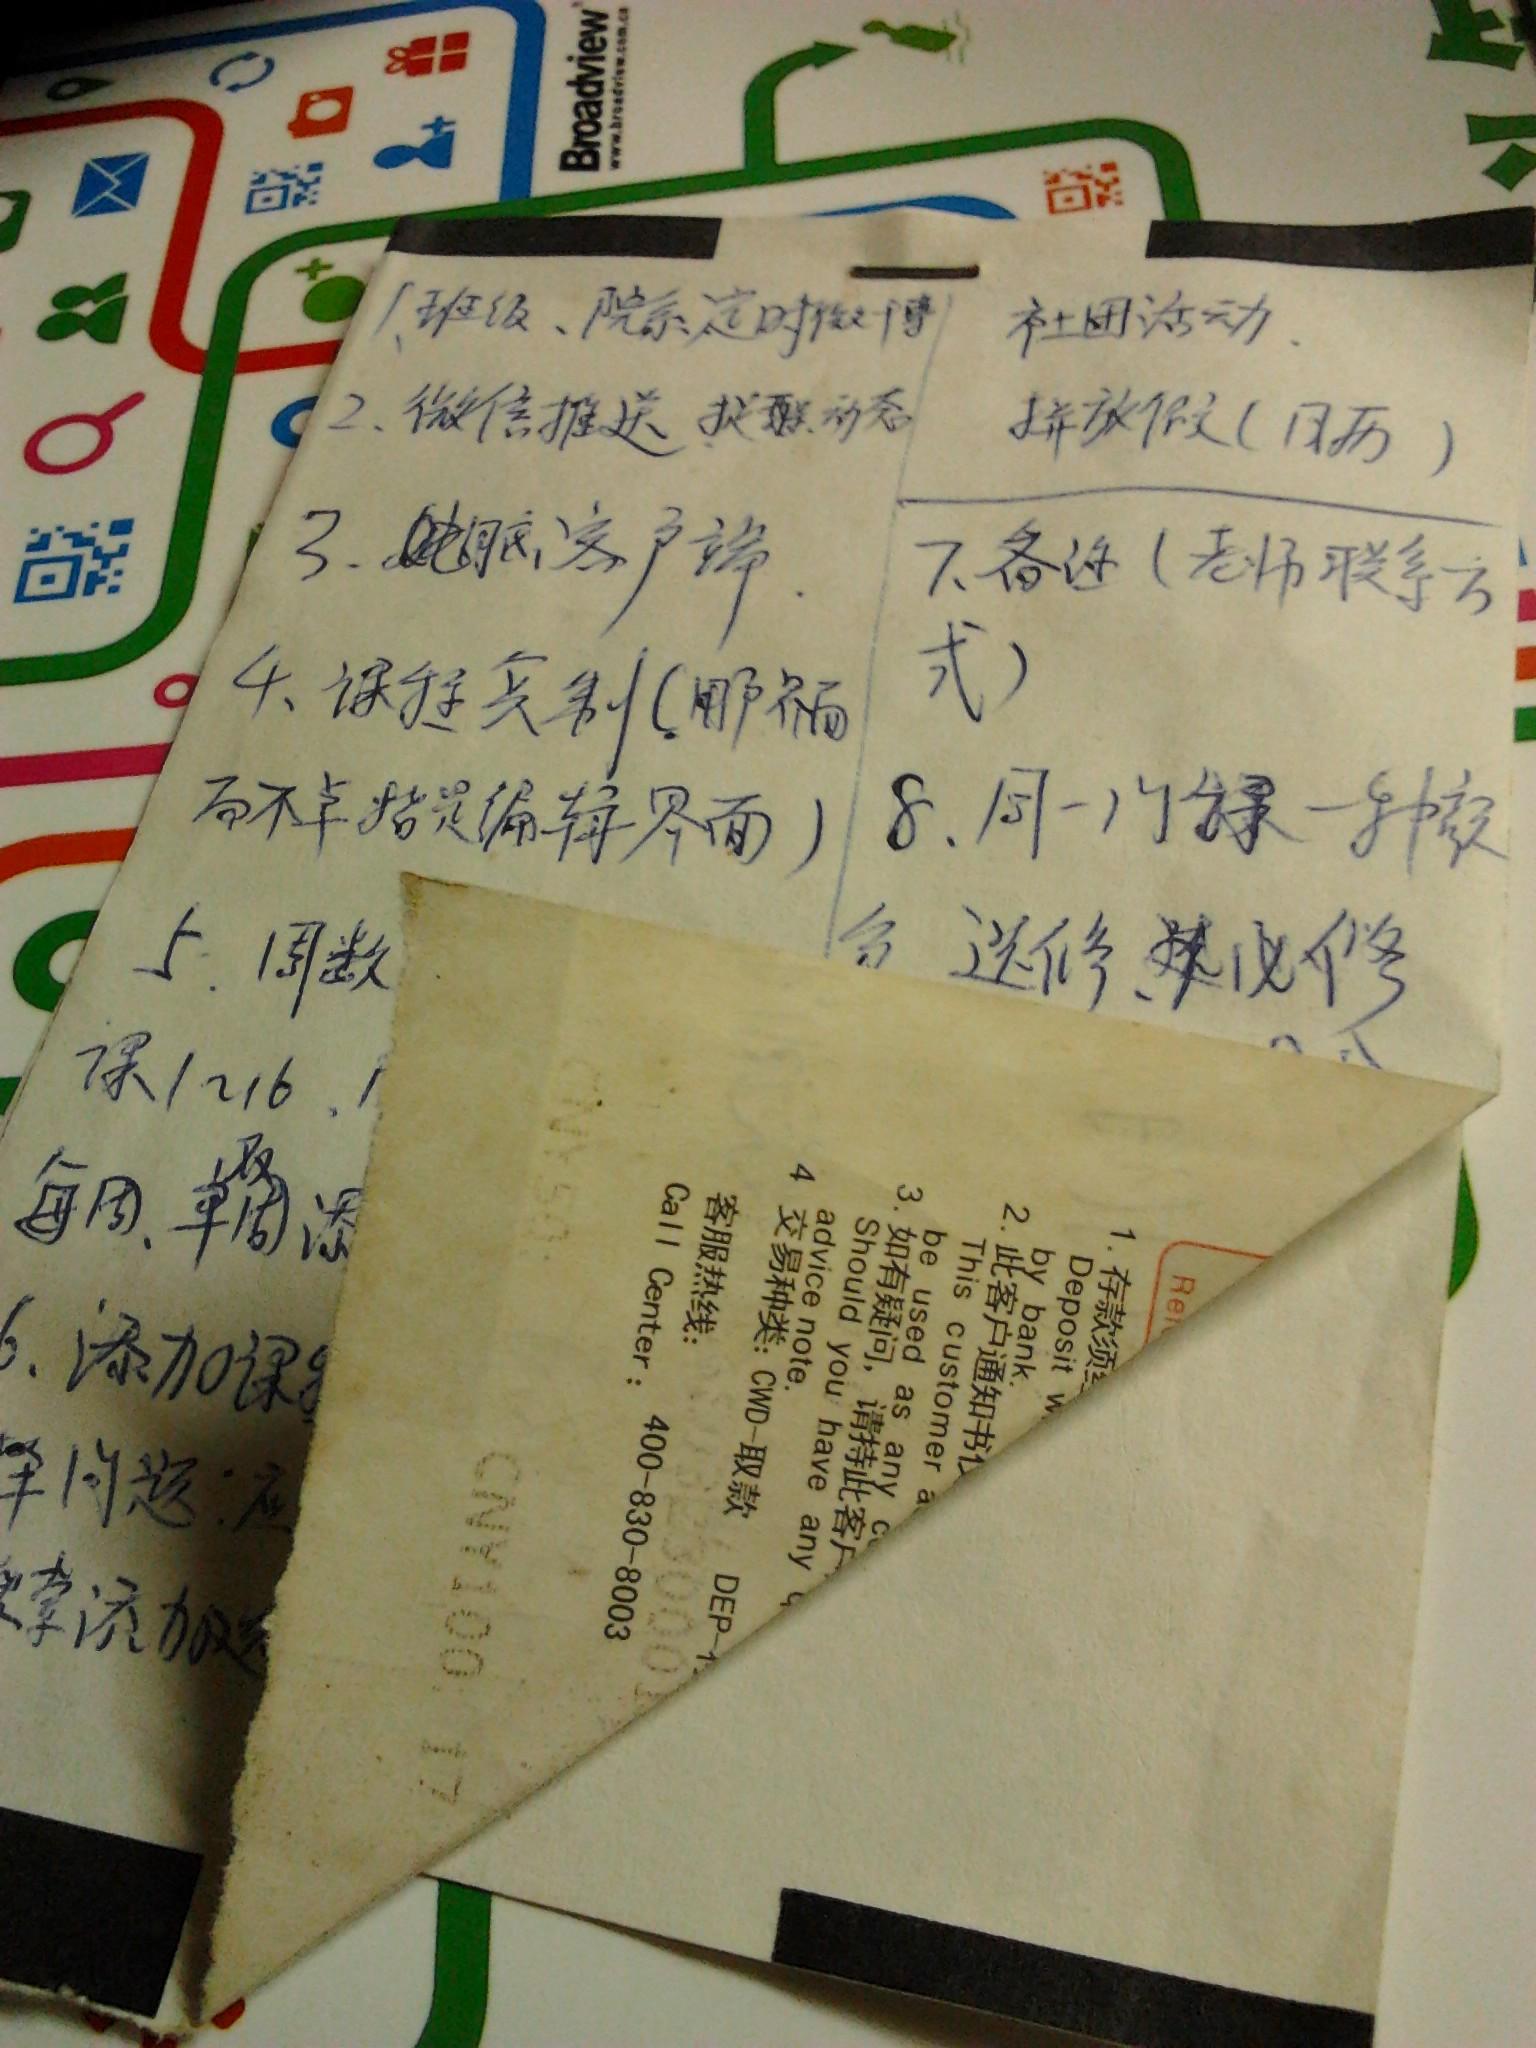 Broadview
www.broadview.com.cn
1、班级、院系定时微博
2、微信推送 提醒动态
3.电脑客户端.
4、课程复制(
而不单指是编辑界面)
5.周数
课1~16.1
每周、单双周添
6、添加课
问题:
添加
社团活动.
放假(日历)
7、备注(老师联系方
式)
8、同一门课一种颜
色 选修、必修
1. 存款须
Deposit w
by bank.
2. 此客户通知书仅
This customer a
be used as any c
3. 如有疑问, 请持此客户
Should you have any q
advice note.
4 交易种类: CWD-取款 DEP-
客服热线:
Call Center: 400-830-8003
CNY50.
CNY100.17